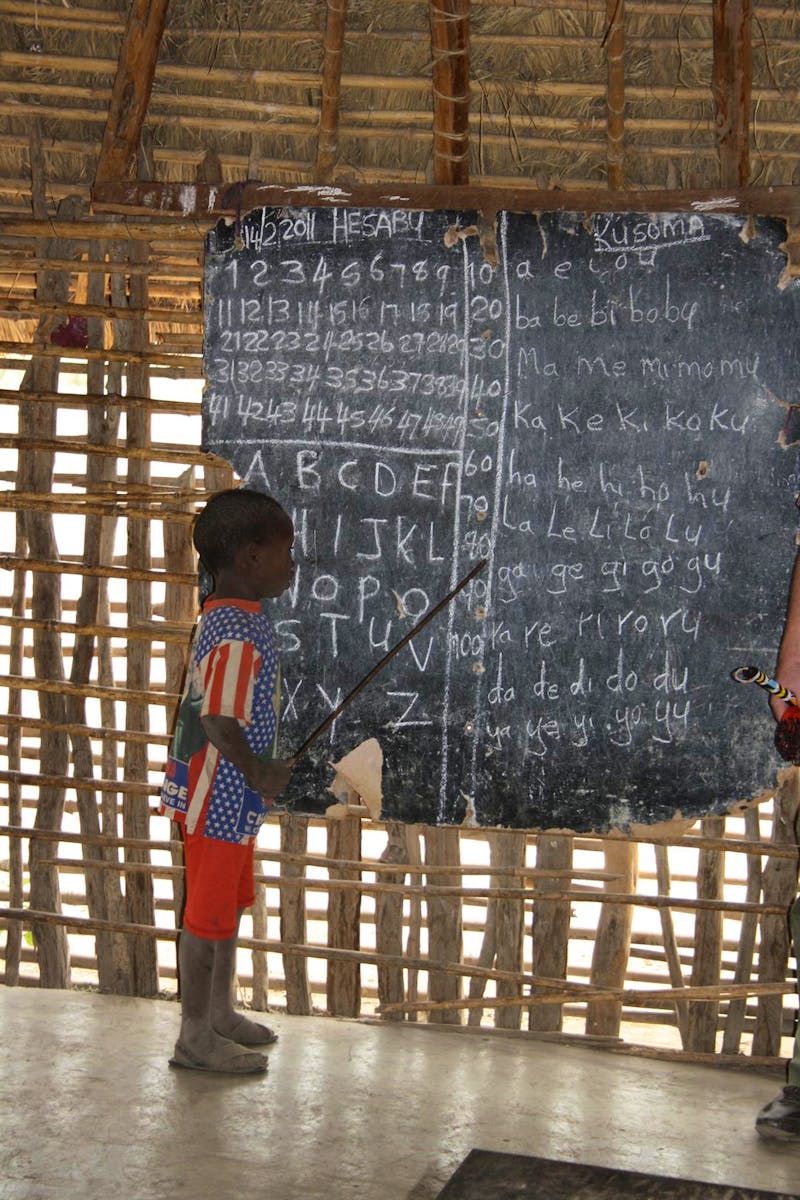 14/2/2011 HESABU
1 2 3 4 5 6 7 8 9 10
11 12 13 14 15 16 17 18 19 20
21 22 23 24 25 26 27 28 29 30
31 32 33 34 35 36 37 38 39 40
41 42 43 44 45 46 47 48 49 50
60
70
80
90
100
A B C D E F
H I J K L
N O P Q
S T U V
X Y Z
KUSOMA
a e i o u
ba be bi bo bu
Ma me mi mo mu
Ka Ke Ki ko ku
ha he hi ho hu
La Le Li Lo Lu
ga ge gi go gu
ra re ri ro ru
da de di do du
ya ye yi yo yu